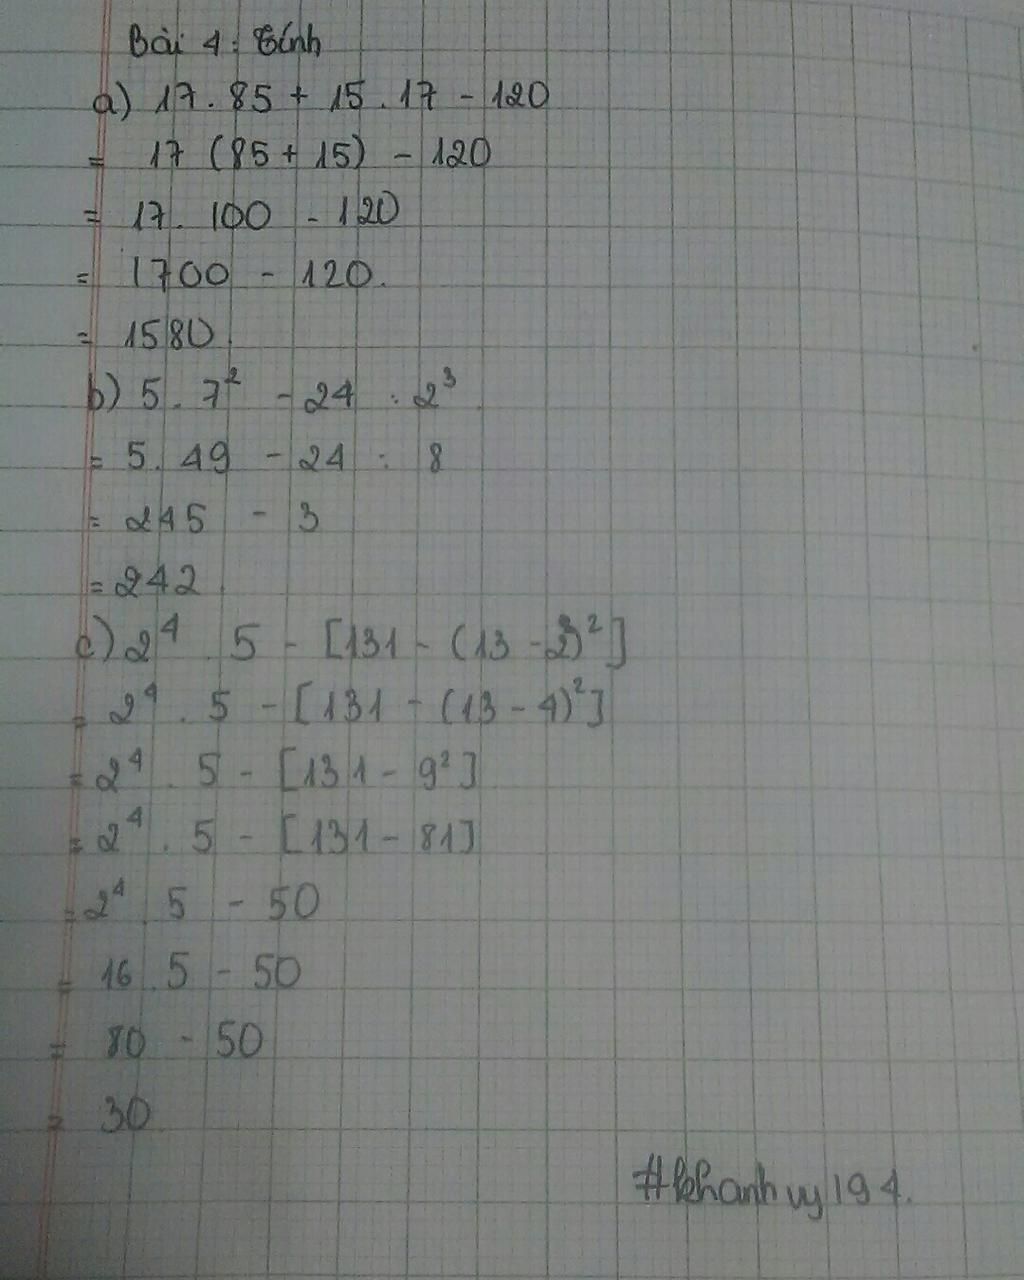 Bài 4: Tính
a) 17.85 + 15.17 - 120
= 17 (85 + 15) - 120
= 17. 100 - 120
= 1700 - 120.
= 1580
b) 5. 7² - 24 : 2³
= 5. 49 - 24 : 8
= 245 - 3
= 242
c) 2⁴ . 5 - [131 - (13 - 2²)²]
= 2⁴ . 5 - [131 - (13 - 4)²]
= 2⁴ . 5 - [131 - 9²]
= 2⁴ . 5 - [131 - 81]
= 2⁴ . 5 - 50
= 16 . 5 - 50
= 80 - 50
= 30
#khanhvy194.